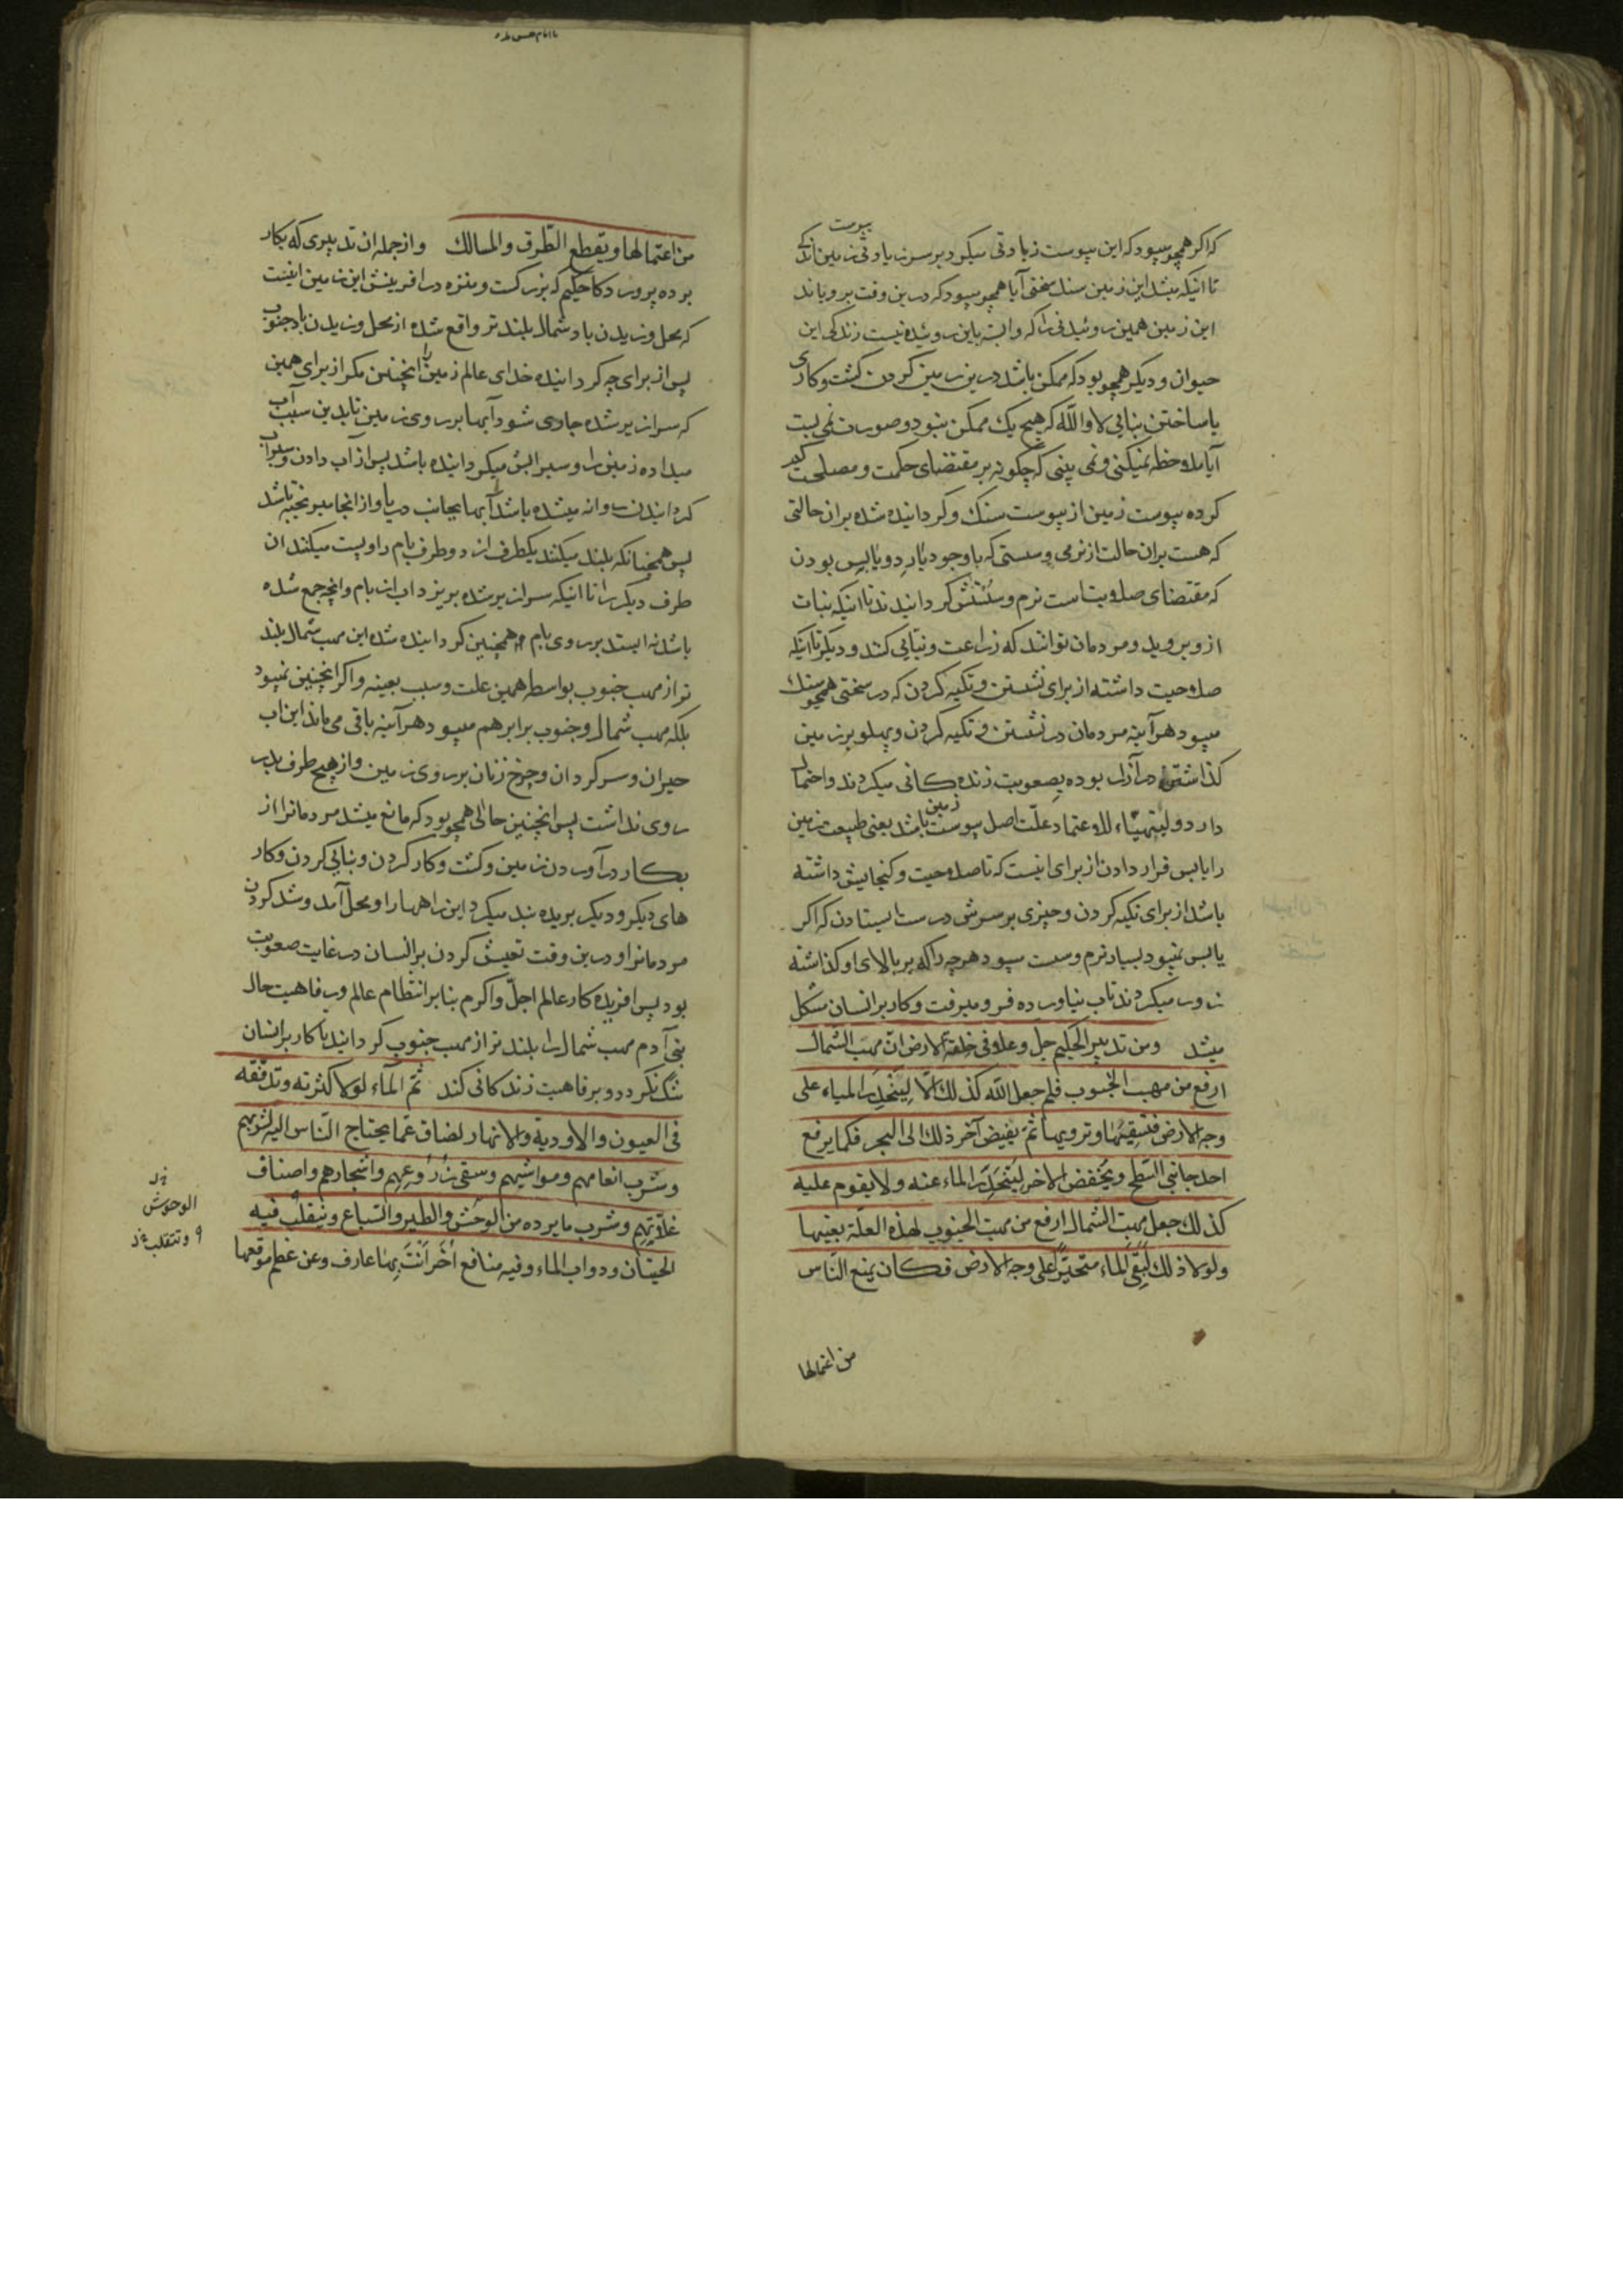 یبوست
که اگر همچو میبود که این یبوست زیادوتی میکرد بر سر زیادوتی زمین اندکی
تا اینکه میشد این زمین سنک سختی آیا همچو میبود که درین وقت برویاند
این زمین همین روئیدنی را که وابسته باین روئیده نیست زندکی این
حیوان و دیکر همچو بود که ممکن باشد درین زمین کردن کشت و کاری
یا ساختن بنایی لا والله که هیچ یک ممکن نبود و صورت نمی بست
آیا ملاحظه نمیکنی و نمی بینی که چکونه بر مقتضای حکمت و مصلحت کم
کرده یبوست زمین از یبوست سنک و کردانیده شده بران حالتی
که هست بران حالت از نرمی و سستی که باوجود بارد و یابس بودن
که مقتضای صلابتست نرم و سستش کردانیدند تا اینکه نبات
ازو بروید و مردمان توانند که زراعت و بنایی کنند و دیکر تا اینکه
صلاحیت داشته از برای نشستن و تکیه کردن که در سختی همچو سنک
میبود هرآینه مردمان در نشستن و تکیه کردن و پهلو بر زمین
کذاشتن در آزار بوده بصعوبت زنده کانی میکردند و احتمال
دارد و لیتهیّاء للاعتماد علّت اصل یبوست زمین باشد یعنی طبیعت زمین
را یابس قرار دادن از برای اینست که تا صلاحیت و کنجایش داشته
باشد از برای تکیه کردن و چیزی بر سرش درست ایستادن که اکر
یابس نمیبود بسیار نرم و سست میبود هرچه را که بر بالای او کذاشته
زور میکردند تاب نیاورده فرو میرفت و کار بر انسان مشکل
میشد ومن تدبیر الحکیم جل وعلا فی خلقة الارض انّ مهبّ الشمال
ارفع من مهب الجنوب فلم جعل الله کذلک الّا لینحدر المیاه علی
وجه الارض فتسقیها وترویها ثمّ یفیض آخر ذلک الی البحر فکما یرفع
احد جانبی السّطح ویخفض الاخر لینحدر الماء عنه ولا یقوم علیه
کذلک جعل مهبّ الشمال ارفع من مهبّ الجنوب لهذه العلّة بعینها
ولولا ذلک لبقی الماء متحیّراً علی وجه الارض فکان یمنع النّاس
من اعتمالها
من اعتمالها ویقطع الطّرق والمسالک و از جمله ان تدبیری که بکار
برده پروردکار حکیم که بزرکست و منزه در افرینش این زمین اینست
که محل وزیدن باد شمال بلندتر واقع شده از محل وزیدن باد جنوب
پس از برای چه کردانیده خدای عالم زمین را اینچنین مکر از برای همین
که سرازیر شده جاری شود آبها بر روی زمین تا بدین سبب آب
میداده زمین را و سیرابش میکردانیده باشد پس از آب دادن و سیراب
کردانیدن روانه میشده باشد آبها بجانب دریا و از انجا میریخته باشد
پس همچنانکه بلند میکنند یکطرف از دو طرف بام را و پست میکنند ان
طرف دیکر را تا اینکه سرازیر شده بریزد اب از بام و انچه جمع شده
باشد نه ایستد بر روی بام همچنین کردانیده شده این مهب شمال بلند
تر از مهب جنوب بواسطه همین علت و سبب بعینه و اکر اینچنین نمیبود
بلکه مهب شمال و جنوب برابر هم میبود هرآینه باقی می ماند این اب
حیران و سرکردان و چرخ زنان بر روی زمین و از هیچ طرف بدر
روی نداشت پس اینچنین حالی همچو بود که مانع میشد مردمانرا از
بکار درآوردن زمین و کشت و کار کردن و بنایی کردن و کار
های دیکر و دیکر بریده بند میکرد این راهها را و محل آمد و شد کردن
مردمانرا و درین وقت تعیش کردن بر انسان در غایت صعوبت
بود پس افریده کار عالم اجلّ و اکرم بنا بر انتظام عالم و رفاهیت حال
بنی آدم مهب شمال را بلندتر از مهب جنوب کردانید تا کار بر انسان
تنک نکردد و برفاهیت زندکانی کند ثمّ الماء لولا کثرته وتدفّقه
فی العیون والاودیة والانهار لضاق عمّا یحتاج النّاس الیه لشربهم
وشرب انعامهم ومواشیهم وسقی زروعهم واشجارهم واصناف
غلّاتهم وشرب ما یرده من الوحش والطیر والسّباع ویتقلّب فیه
الحیتان ودواب الماء وفیه منافع أخر أنت بها عارف وعن عظم موقعها
الوحوش
وتتقلب